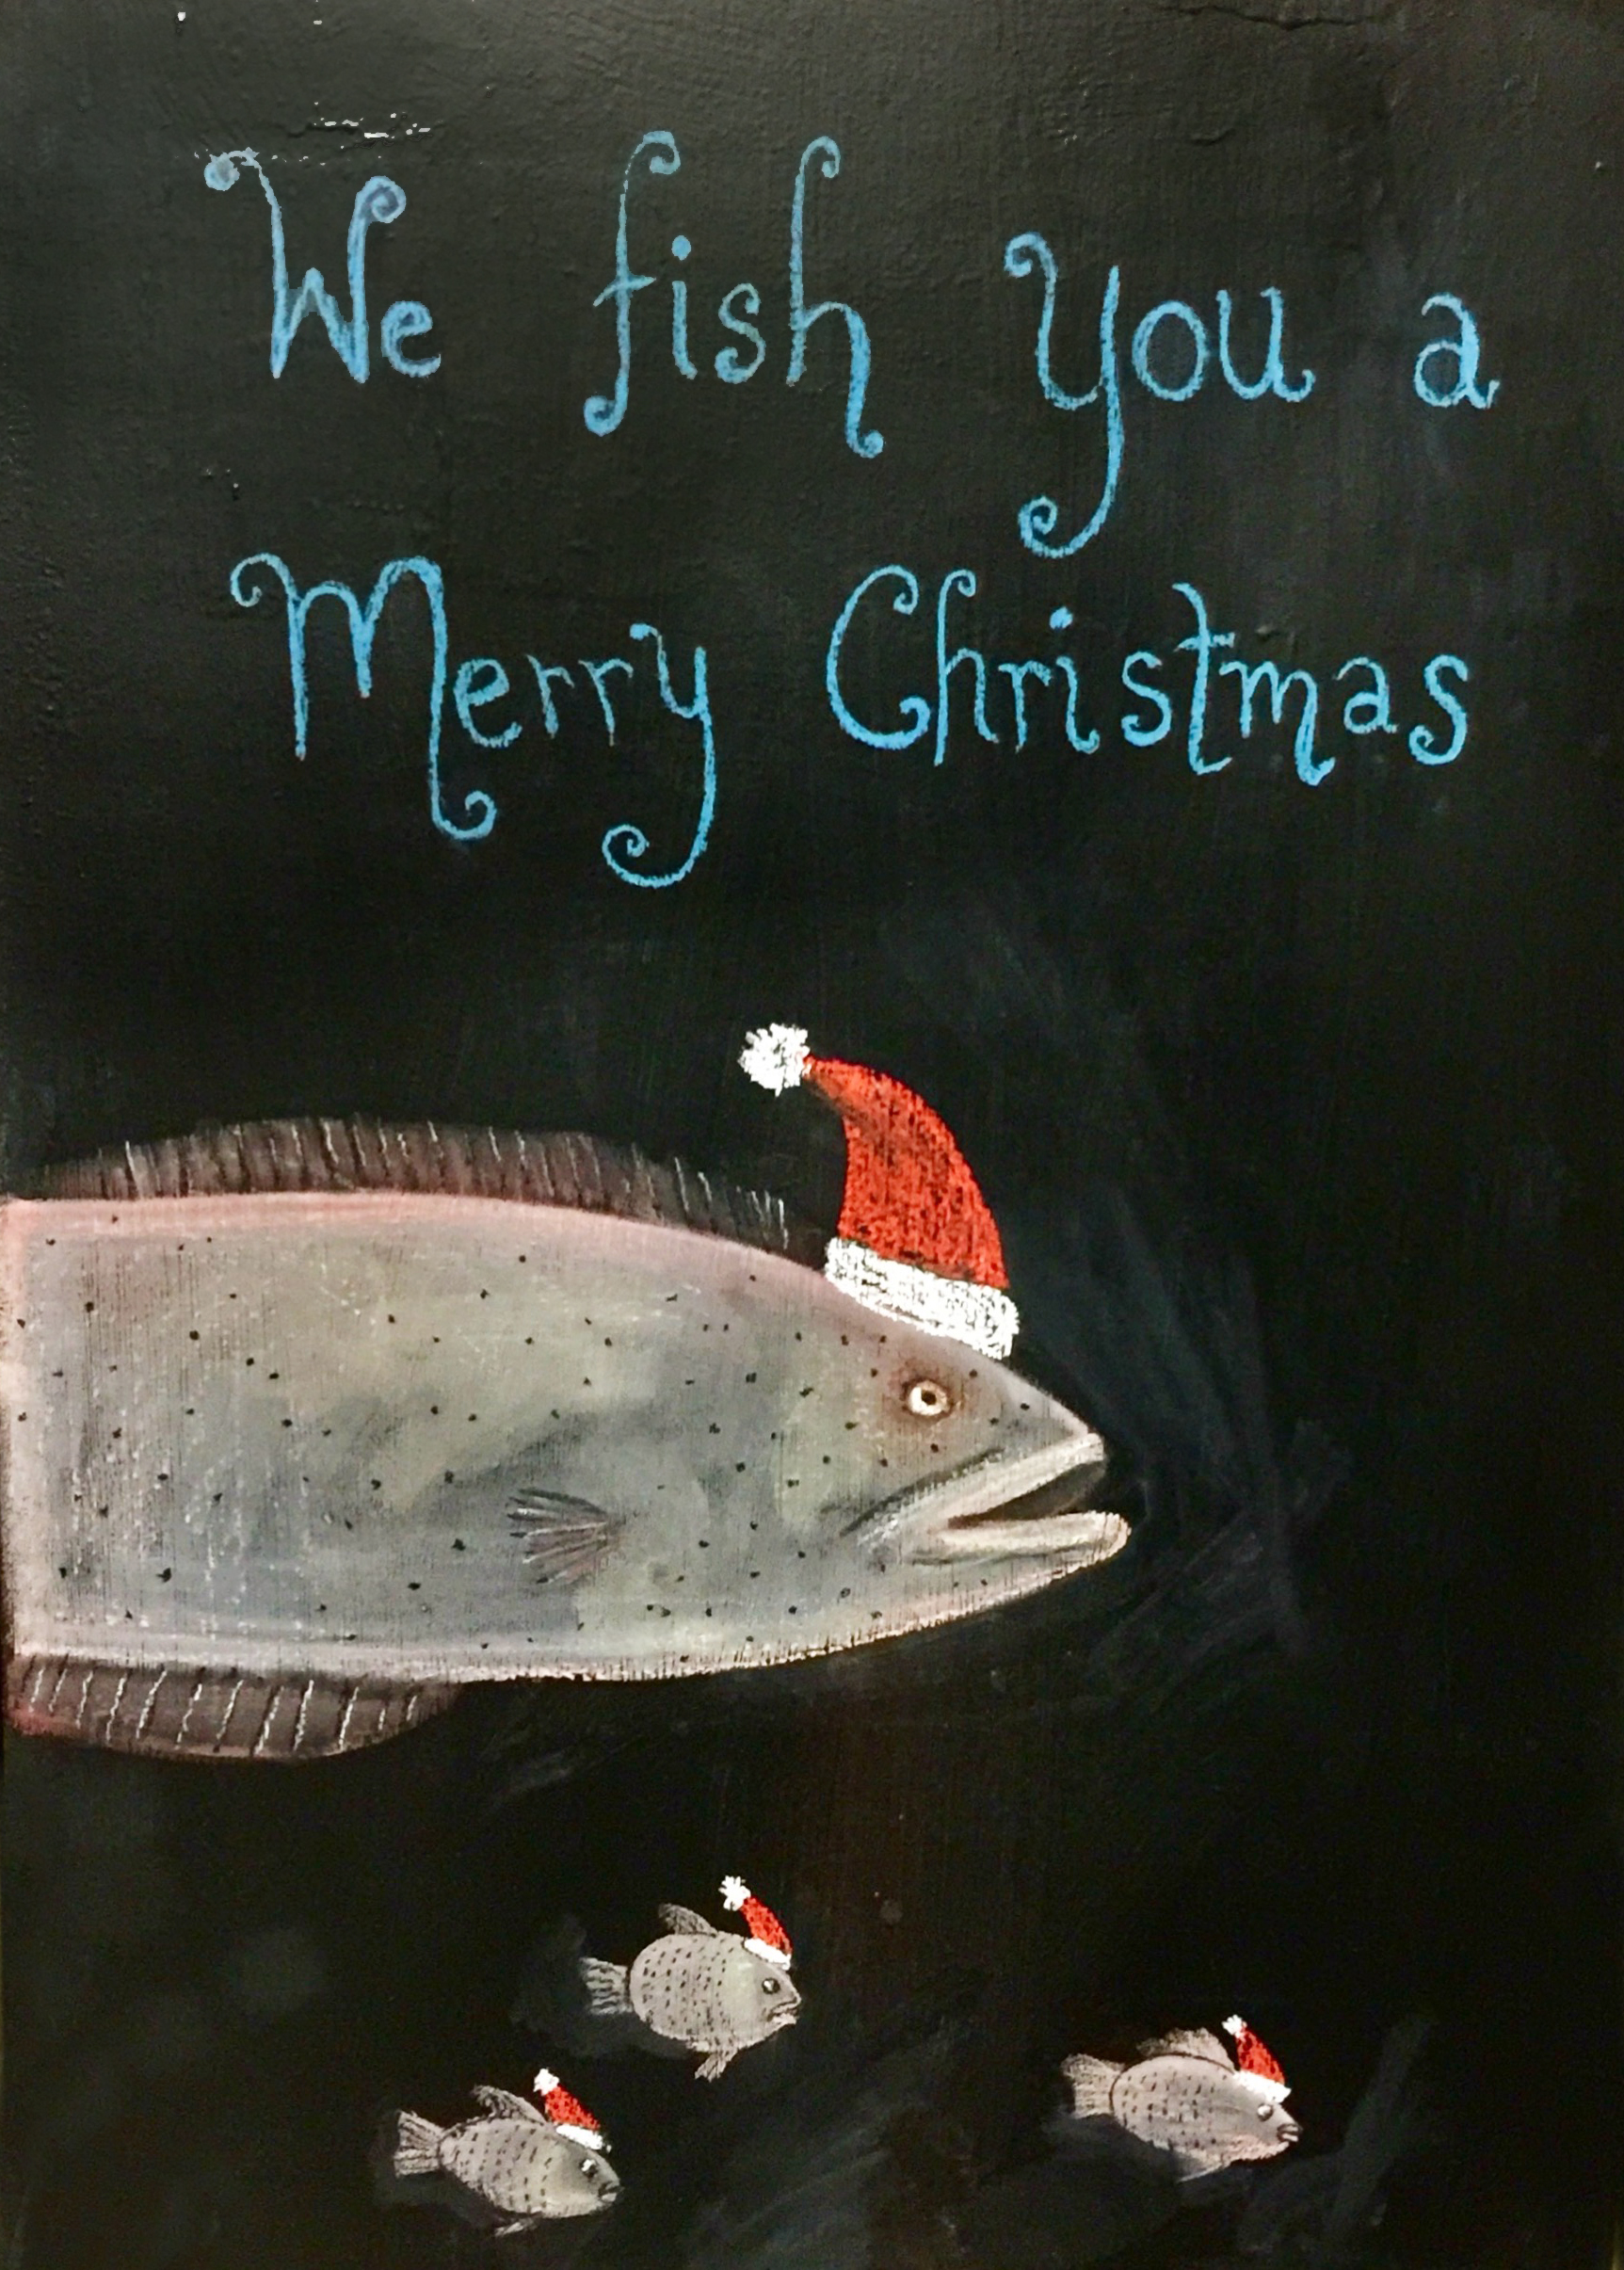 We fish you a
Merry Christmas